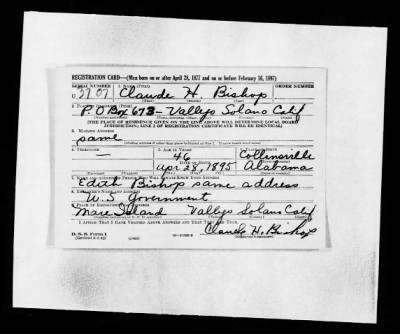 REGISTRATION CARD—(Men born on or after April 28, 1877 and on or before February 16, 1897)
SERIAL NUMBER 1. NAME (Print) ORDER NUMBER
U. Claude H. Bishop
(First) (Middle) (Last)
P.O Box 673 - Vallejo Solano Calif
[THE PLACE OF RESIDENCE GIVEN ON THE LINE ABOVE WILL DETERMINE LOCAL BOARD
JURISDICTION; LINE 2 OF REGISTRATION CERTIFICATE WILL BE IDENTICAL]
3. MAILING ADDRESS
same
4. TELEPHONE 5. AGE IN YEARS 6. PLACE OF BIRTH
— 46 Collinsville
DATE OF BIRTH
Apr. 28 1895 Alabama
7. NAME AND ADDRESS OF PERSON WHO WILL ALWAYS KNOW YOUR ADDRESS
Edith Bishop same address
8. EMPLOYER'S NAME AND ADDRESS
U.S Government
9. PLACE OF EMPLOYMENT OR BUSINESS
Mare Island Vallejo Solano Calif
I AFFIRM THAT I HAVE VERIFIED ABOVE ANSWERS AND THAT THEY ARE TRUE.
D. S. S. Form 1
Claude H. Bishop